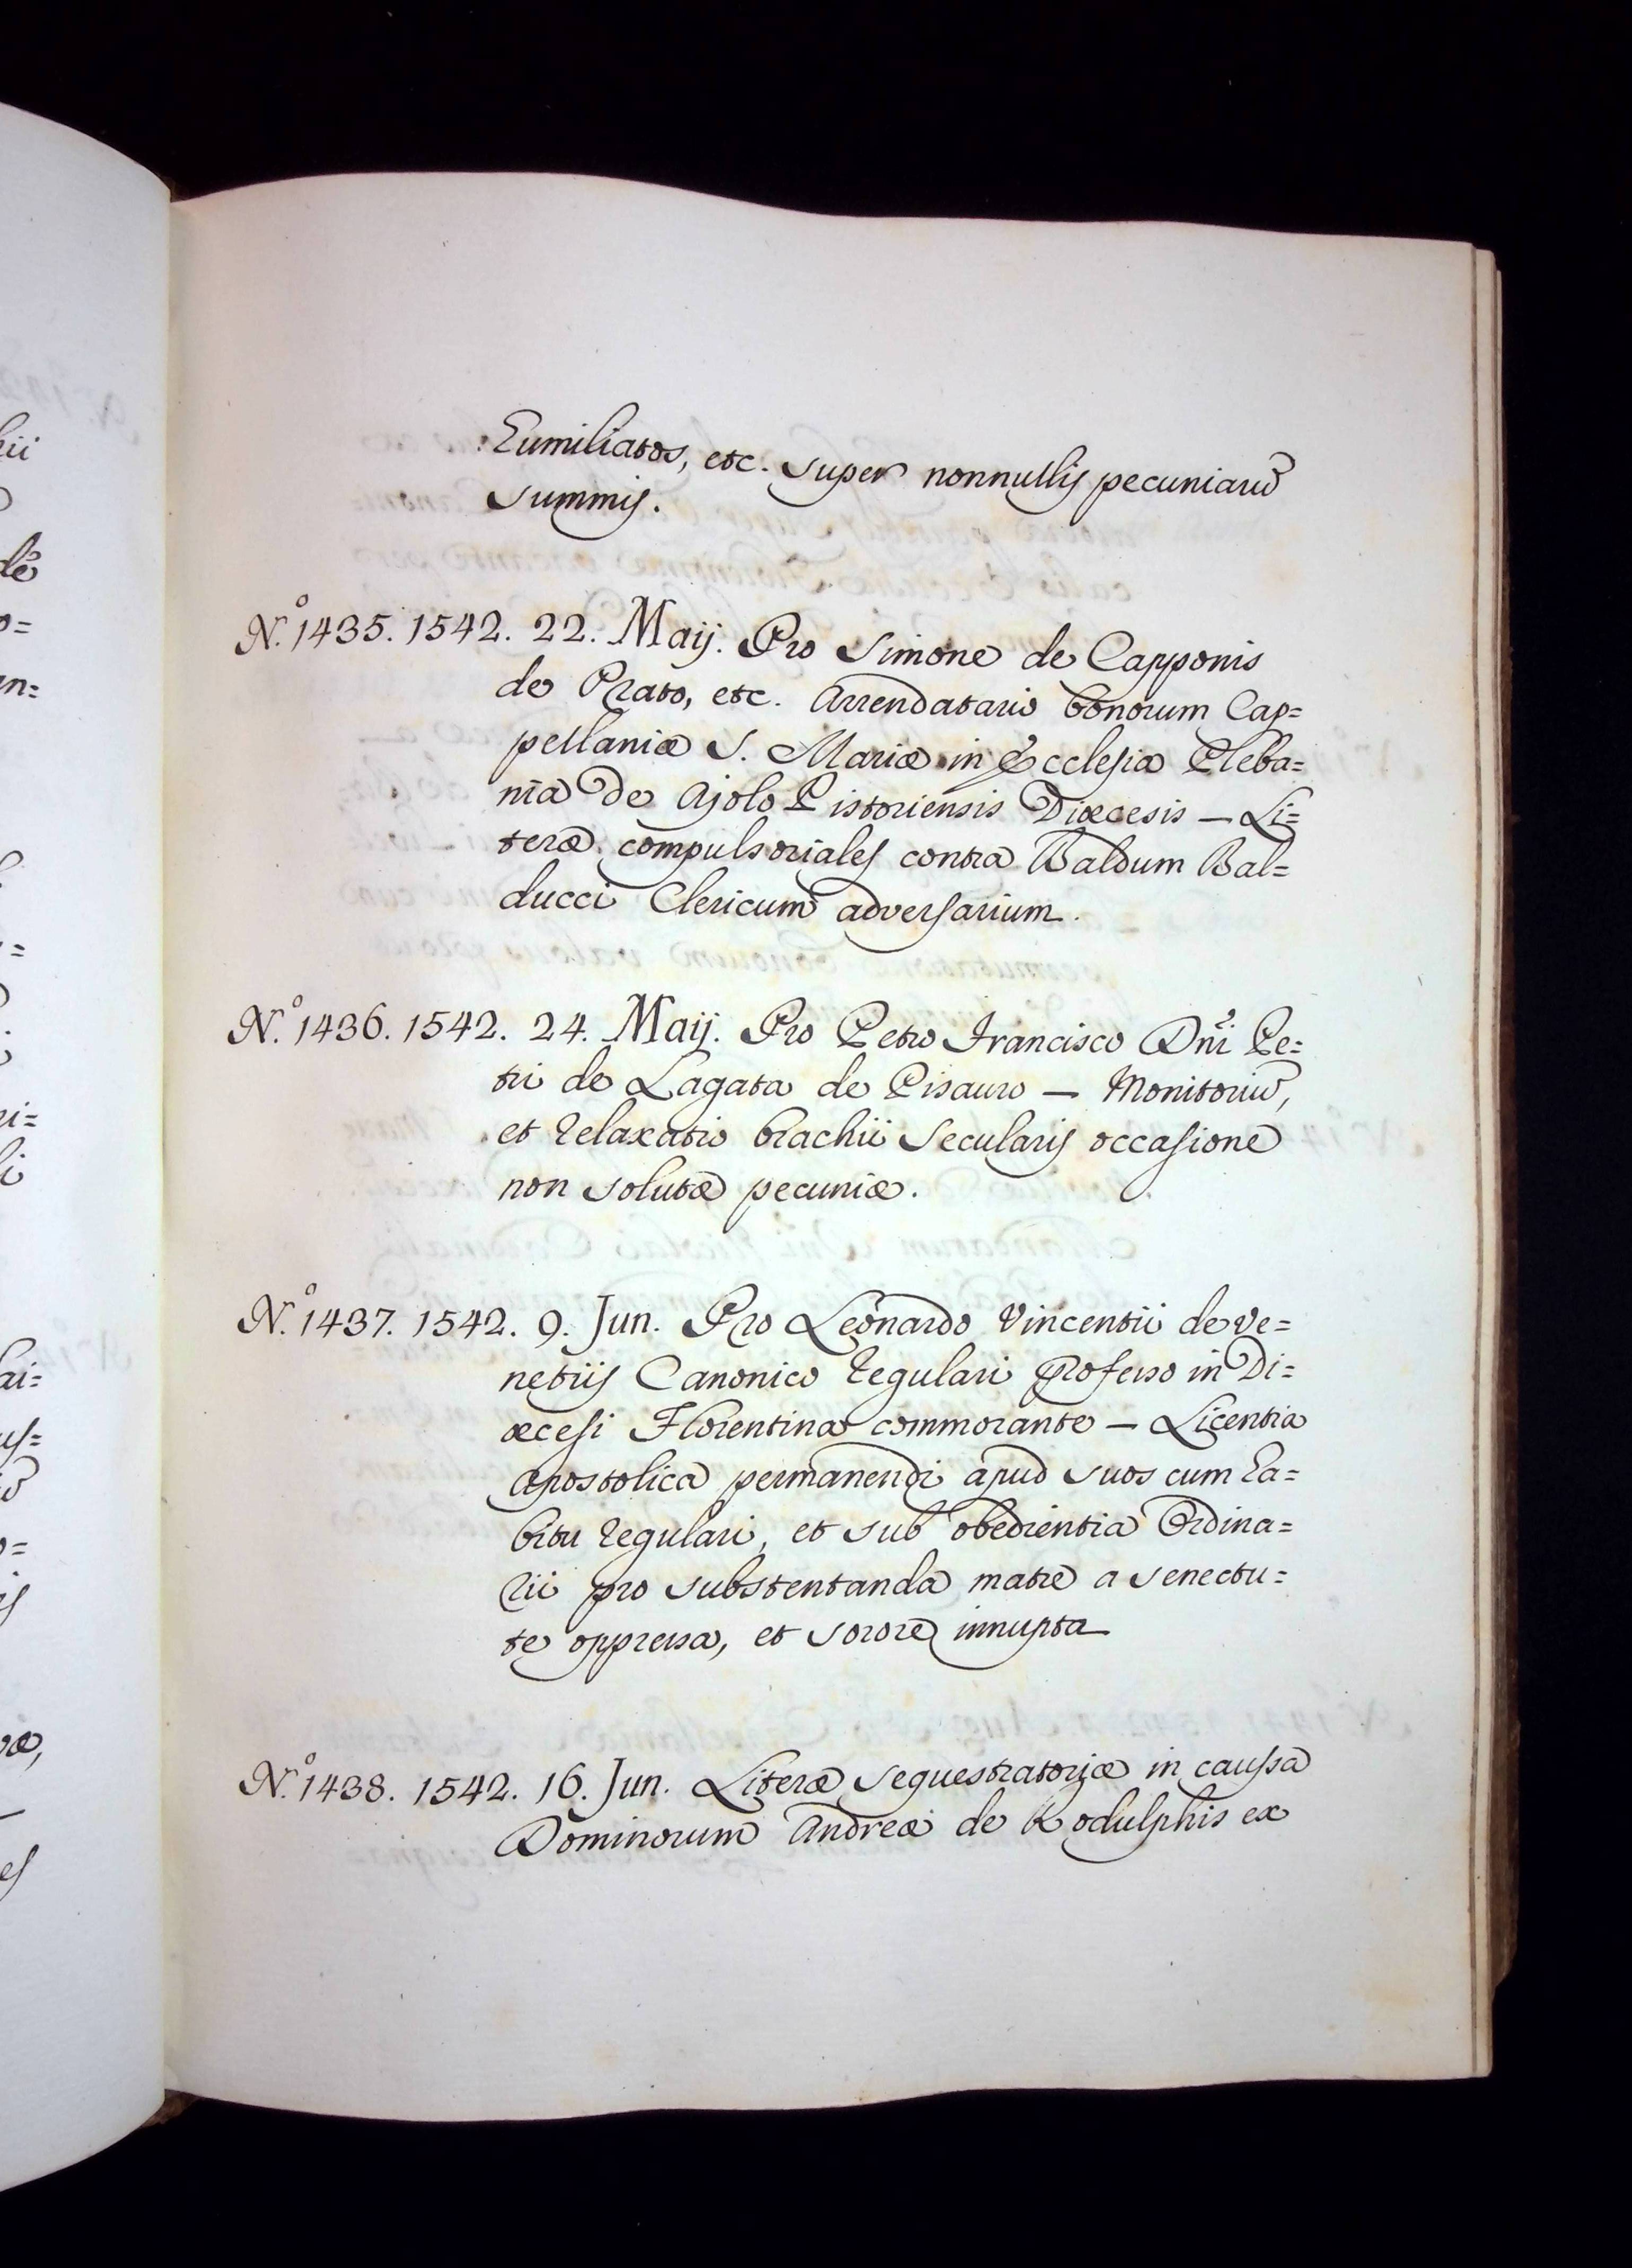 Humiliatos, etc. super nonnullis pecuniarũ
summis.
N.º 1435. 1542. 22. Maij. Pro Simone de Capponis
de Prato, etc. Arrendatario bonorum Cap=
pellaniæ S. Mariæ in Ecclesia Pleba=
nia de Ajolo Pistoriensis Diœcesis — Li=
teræ compulsoriales contra Baldum Bal=
ducci Clericum adversarium.
N.º 1436. 1542. 24. Maij. Pro Petro Francisco Dñi Pe=
tri de Lagata de Pisauro — Monitoriũ,
et relaxatio brachii Secularis occasione
non solutæ pecuniæ.
N.º 1437. 1542. 9. Jun. Pro Leonardo Vincentii de Ve=
netiis Canonico regulari Professo in Di=
œcesi Florentina commorante — Licentia
Apostolica permanendi apud suos cum ha=
bitu regulari, et sub obedientia Ordina=
rii pro substentanda matre a senectu=
te oppressa, et sorore innupta
N.º 1438. 1542. 16. Jun. Literæ sequestratoriæ in caussa
Dominorum Andreæ de Rodulphis ex